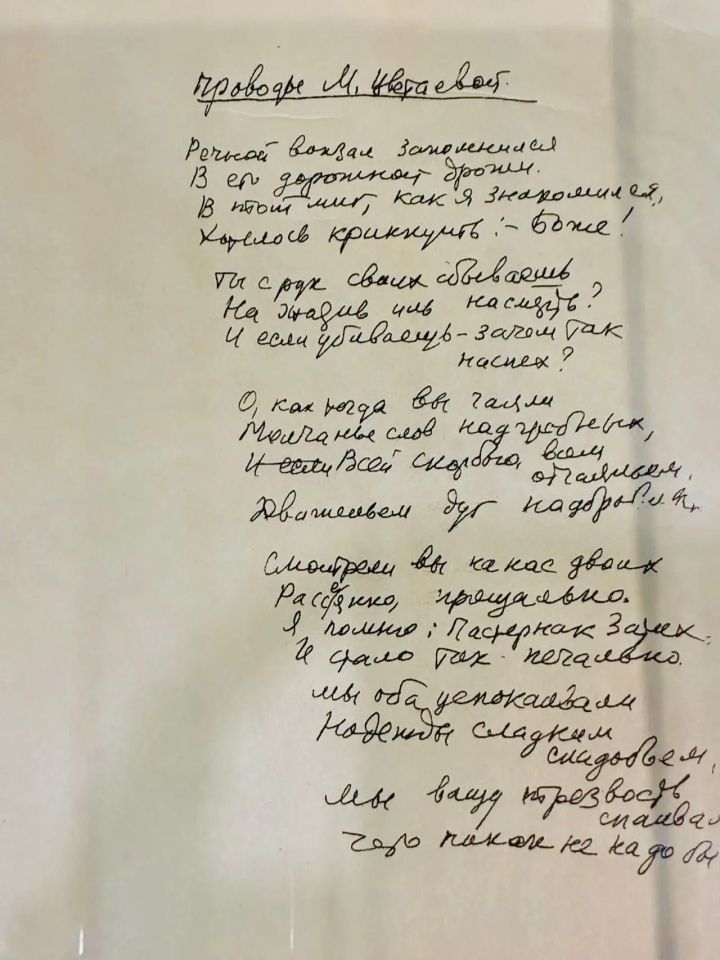 Проводы М. Цветаевой.
Речной вокзал запомнился
В его дорожной дрожи.
В тот миг, как я знакомился,
Хотелось крикнуть:- Боже!
Ты с рук своих сбываешь
На жизнь иль на смерть?
И если убиваешь - зачем так
наспех?
О, как тогда вы чаяли
Молчанье слов надгробных,
И если Всей скорбью, всем
отчаяньем,
Движеньем дуг надбровных,
Смотрели вы на нас двоих
Рассеянно, прощально.
Я помню: Пастернак затих.
И стало так печально.
Мы оба успокаивали
Надежды сладким
снадобьем,
Мы вашу трезвость
спаива
Чего никак не надо бы